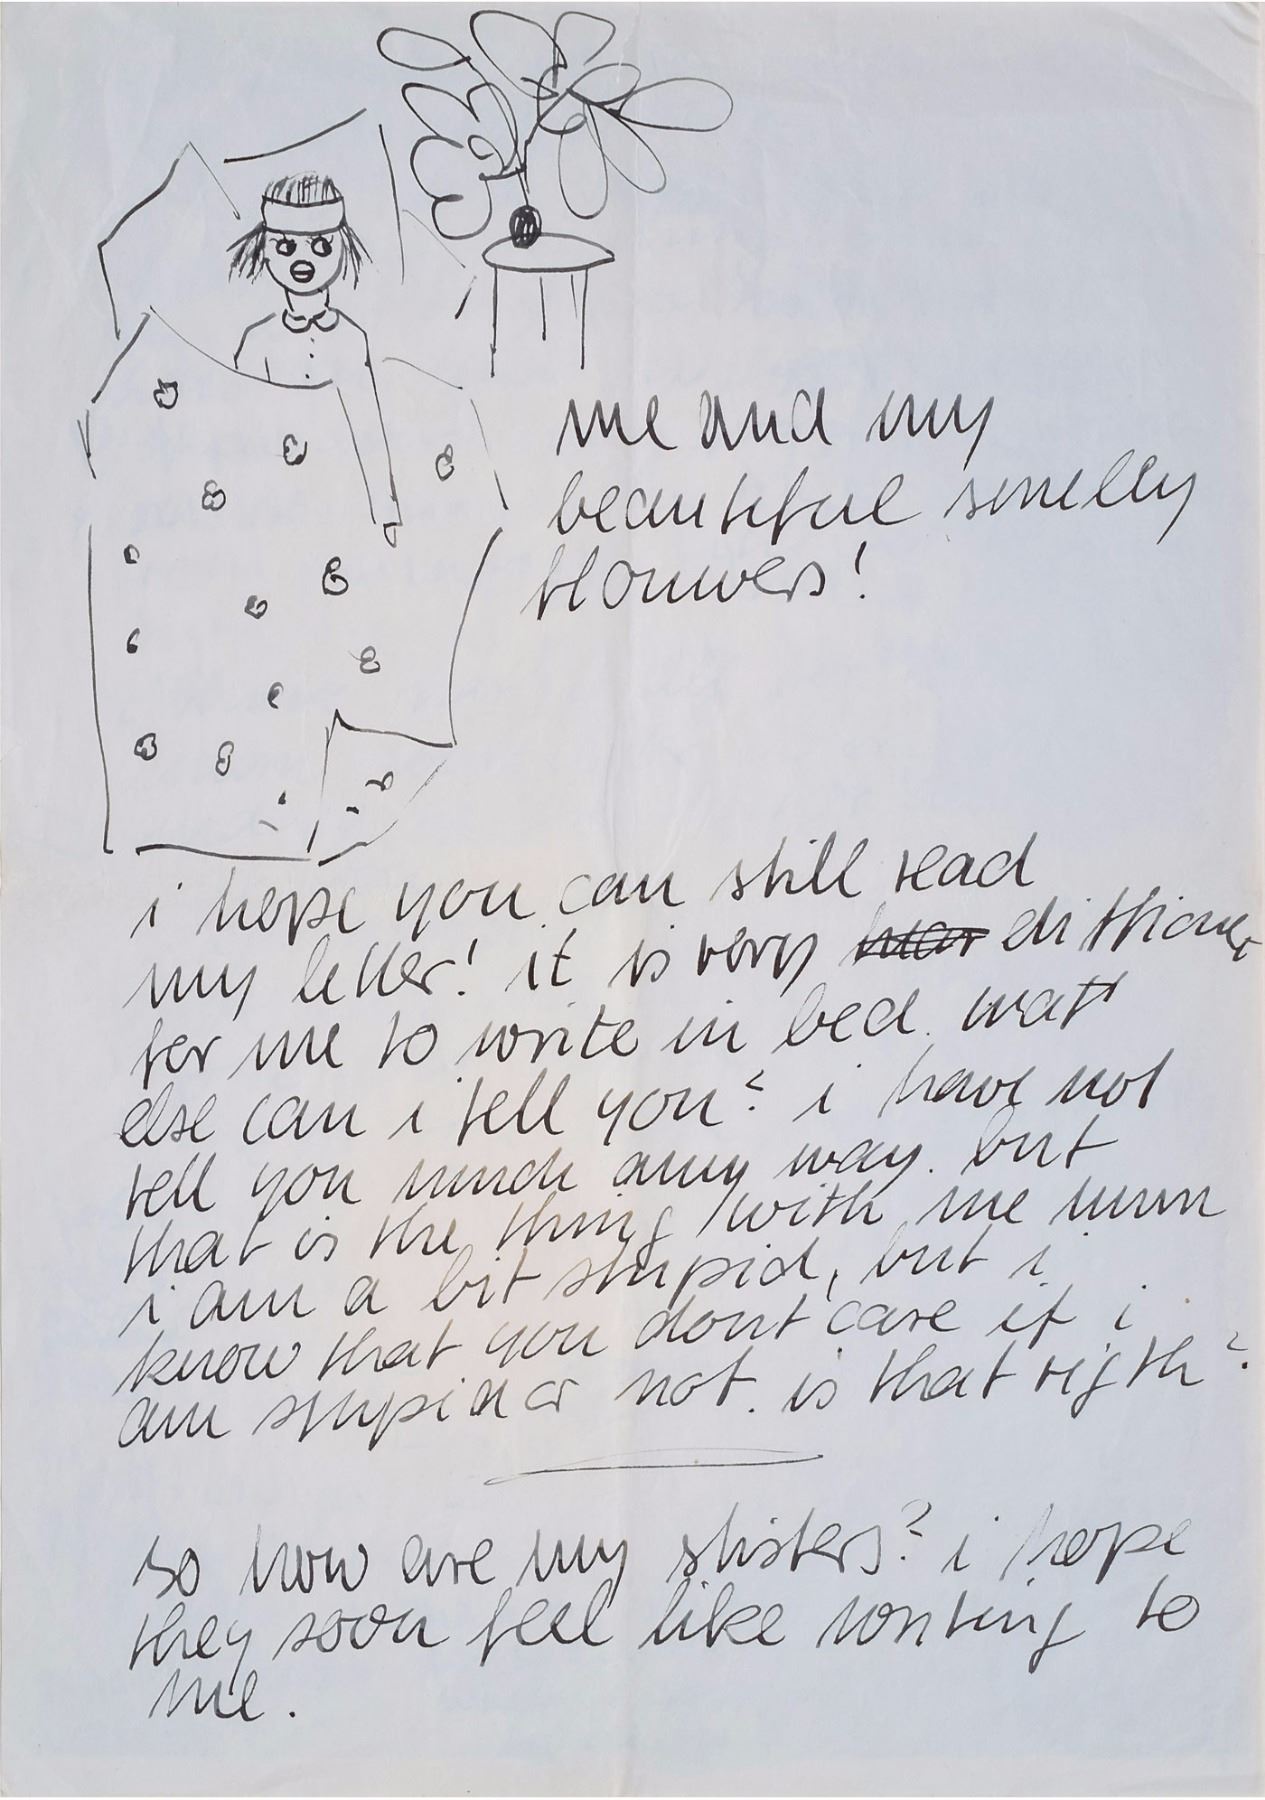 me and my
beautiful smelly
flouwers!
i hope you can still read
my letter! it is very har difficue
for me to write in bed. watt
else can i tell you? i have not
tell you much anny way. but
that is the thing with me mum
i am a bit stupid, but i
know that you dont care if i
am stupid or not. is that rigth?
so how are my shisters? i hope
they soon feel like writing to
me.